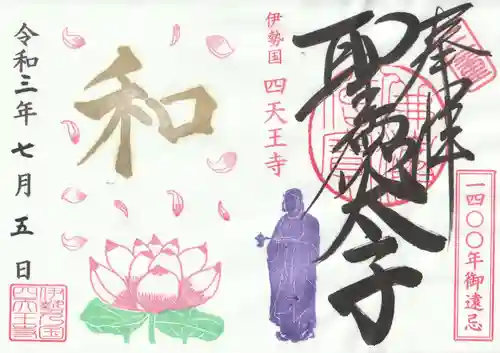 奉拝
一四〇〇年御遠忌
聖徳太子
伊勢国 四天王寺
和
令和三年七月五日